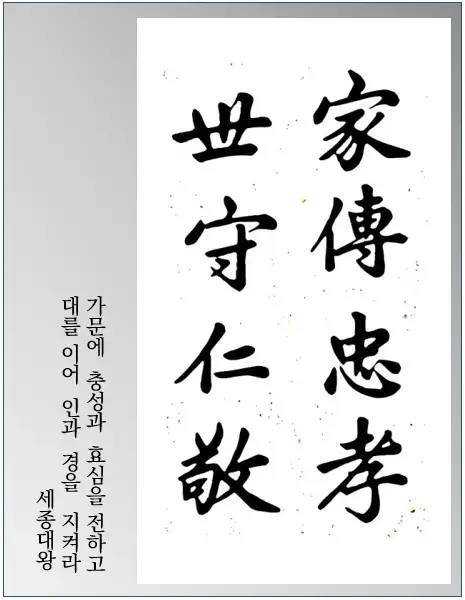 家傳忠孝
世守仁敬
가문에 충성과 효심을 전하고
대를 이어 인과 경을 지켜라
세종대왕